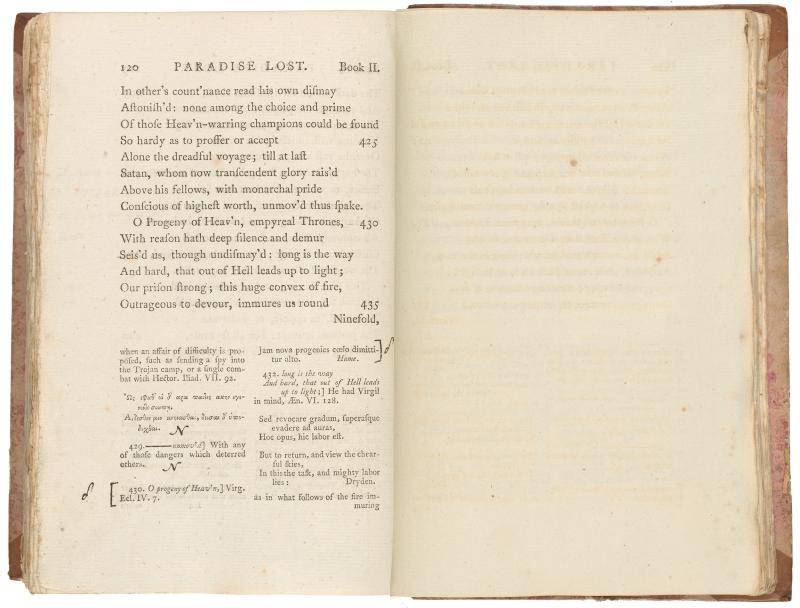 120 PARADISE LOST. Book II.
In other's count'nance read his own diſmay
Aſtoniſh'd: none among the choice and prime
Of thoſe Heav'n-warring champions could be found
So hardy as to proffer or accept 425
Alone the dreadful voyage; till at laſt
Satan, whom now tranſcendent glory rais'd
Above his fellows, with monarchal pride
Conſcious of higheſt worth, unmov'd thus ſpake.
O Progeny of Heav'n, empyreal Thrones, 430
With reaſon hath deep ſilence and demur
Seis'd us, though undiſmay'd: long is the way
And hard, that out of Hell leads up to light;
Our priſon ſtrong; this huge convex of fire,
Outrageous to devour, immures us round 435
Ninefold,
when an affair of difficulty is pro-
poſed, ſuch as ſending a ſpy into
the Trojan camp, or a ſingle com-
bat with Hector. Iliad. VII. 92.
N
429.——unmov'd] With any
of thoſe dangers which deterred
others. N
430. O progeny of Heav'n,] Virg.
Ecl. IV. 7.
Jam nova progenies cœlo dimitti-
tur alto. Hume.
432. long is the way
And hard, that out of Hell leads
up to light;] He had Virgil
in mind, Æn. VI. 128.
Sed revocare gradum, ſuperaſque
evadere ad auras,
Hoc opus, hic labor eſt.
But to return, and view the chear-
ful ſkies,
In this the taſk, and mighty labor
lies: Dryden.
as in what follows of the fire im-
muring